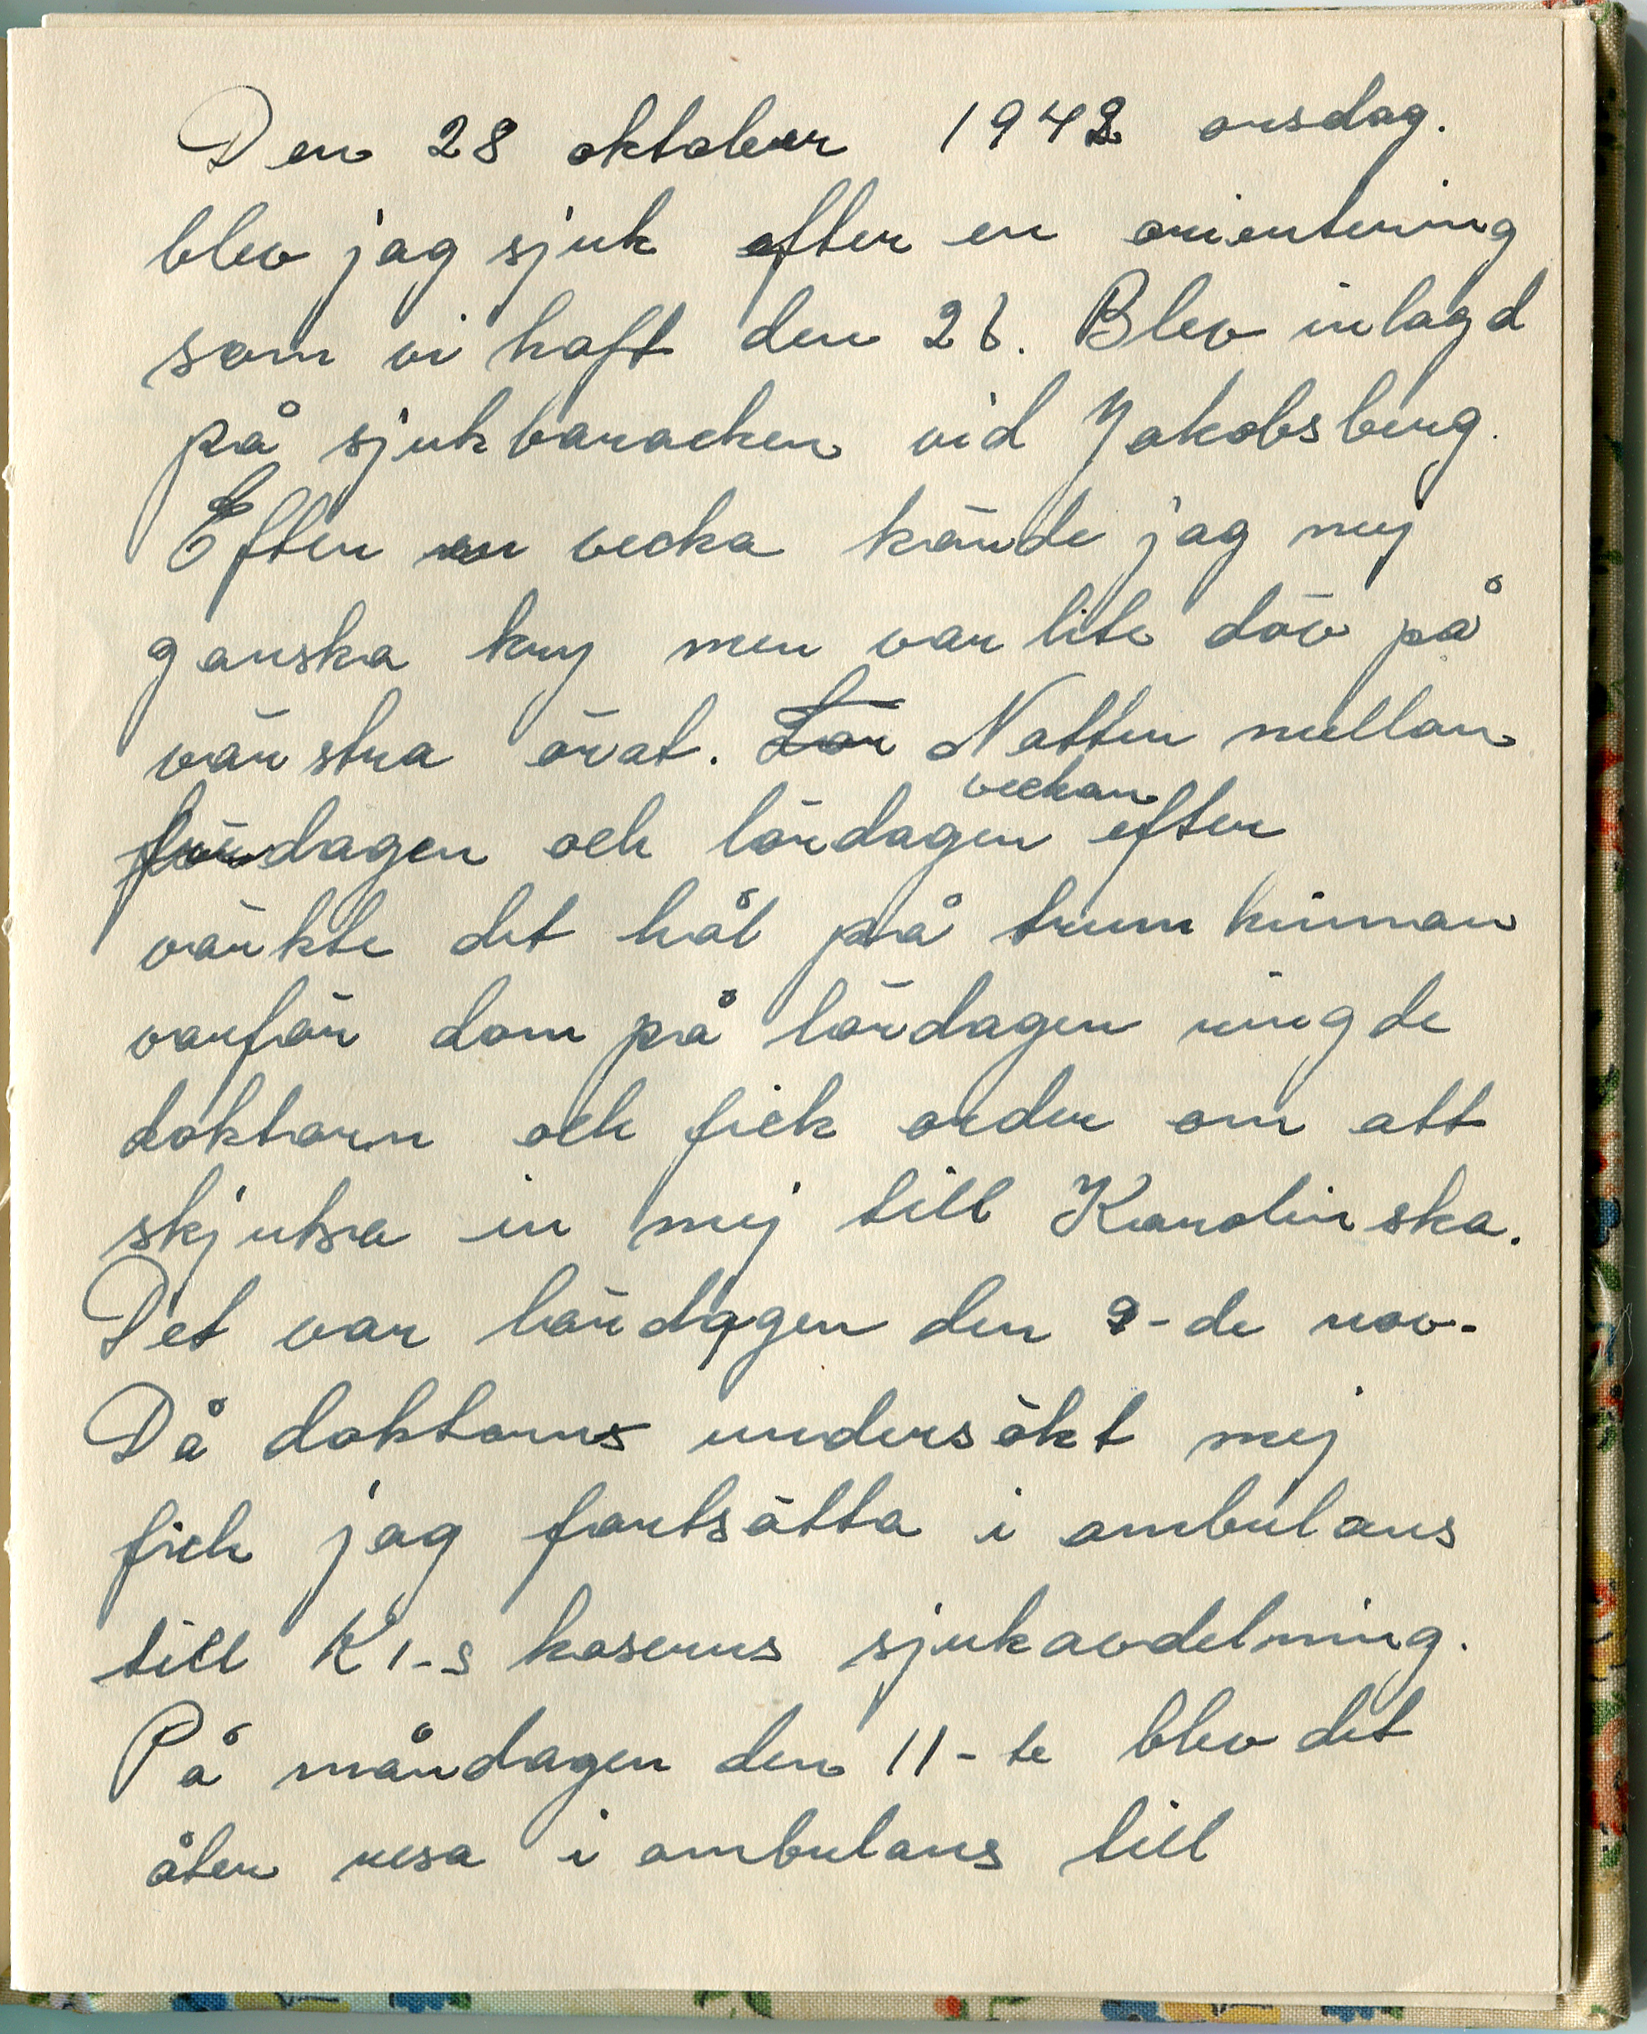 Den 28 oktober 1942 onsdag.
blev jag sjuk efter en orientering
som vi haft den 26. Blev inlagd
på sjukbaracken vid Jakobsberg.
Efter en vecka kände jag mej
ganska kry men var lite döv på
vänstra örat. Lör Natten mellan
veckan
fredagen och lördagen efter
värkte det hål på trumhinnan
varför dom på lördagen ringde
doktorn och fick order om att
skjutsa in mej till Karolinska.
Det var lördagen den 9-de nov.
Då doktorns undersökt mej
fick jag fortsätta i ambulans
till K1-s kaserns sjukavdelning.
På måndagen den 11-te blev det
åter resa i ambulans till